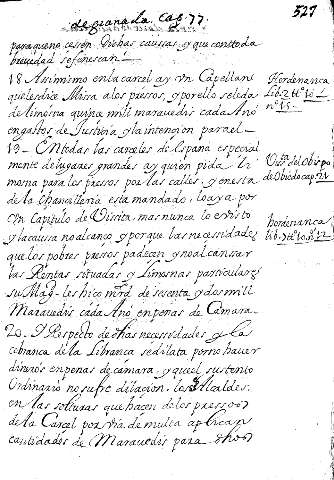 de granada Cap. 77.
527
para que no cessen dichas caussas, y que con toda
brevedad se fenescan
18 Assimismo en la carcel ay un Capellan
que les dice Missa a los pressos, y por ello se le da
de limosna quince mill maravedis cada Año
en gastos de Justicia y la intencion para el
Hordenanca
Lib. 2 tto 10
nº 15
19 En todas las carceles de España especial
mente de lugares grandes ay quien pida li
mosna para los pressos por las calles, y en esta
de la Chancilleria esta mandado, lo aya por
un Capitulo de Visita mas nunca lo e visto
y la caussa no alcanço, y porque las necessidades
que los pobres pressos padecen y no alcansar
las Rentas situadas y Limosnas particulares
su Magd les hiço mrd de sesenta y dos mill
Maravedis cada Año en penas de Camara
Vista del Obispo
de Obiedo cap. 21
hordenanca
lib. 2 tto 10 nº 12
20 I Respecto de dhas necessidades y la
cobranca de la Libranca se dilata por no hauer
dineros en penas de camara, y que el sustento
Ordinario no sufre dilacion, los Alcaldes
en las solturas que hacen de los pressos
de la Carcel por via de multa aplican
cantidades de Maravedis para dhos